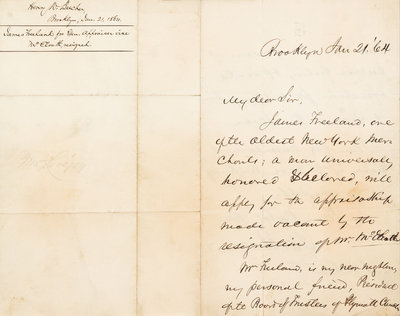 Henry W. Beecher,
Brooklyn, Jan. 21, 1864.
James Freeland for Gen. Appraiser vice
Mr resigned.
Brooklyn Jan 21.' 64
My dear Sir,
James Freeland, one
of the oldest New York Mer
chants; a man universally
honored & beloved, will
apply for the appraisership
made vacant by the
resignation of Mr.
Mr Freeland, is my near neighbor,
my personal friend, President
of the Board of Trustees of Plymouth Church